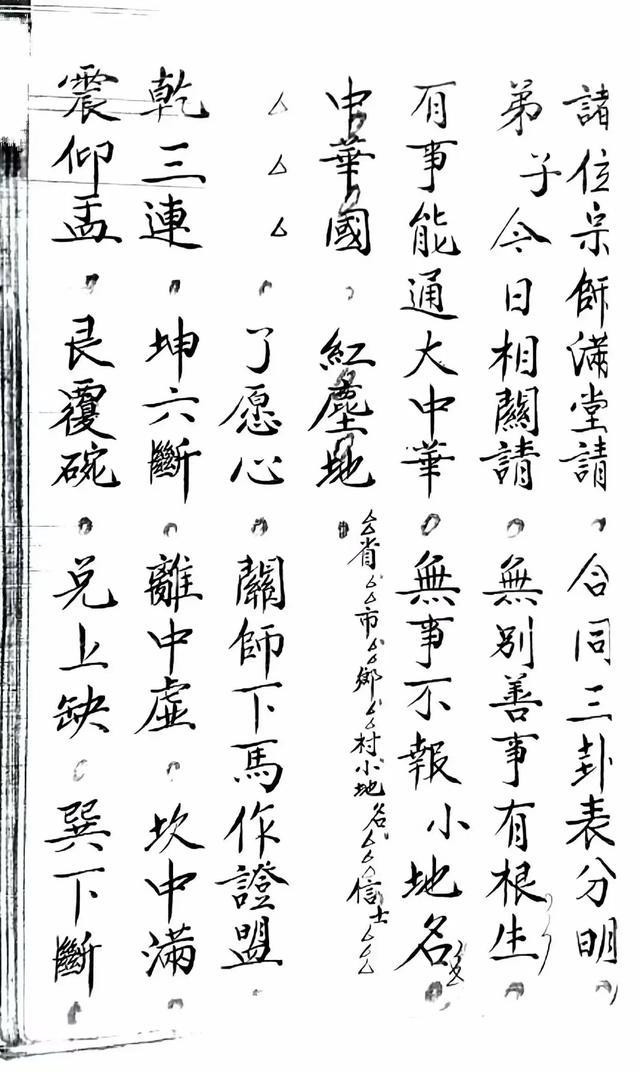 諸位宗師滿堂請 合同三卦表分明
弟子今日相關請 無別善事有根生
有事能通大中華 無事不報小地名
中華國 紅塵地 △△省△△市△△鄉△△村小地名△△△信士△△△
△△△ 了愿心 關師下馬作證盟
乾三連 坤六斷 離中虛 坎中滿
震仰盂 艮覆碗 兌上缺 巽下斷